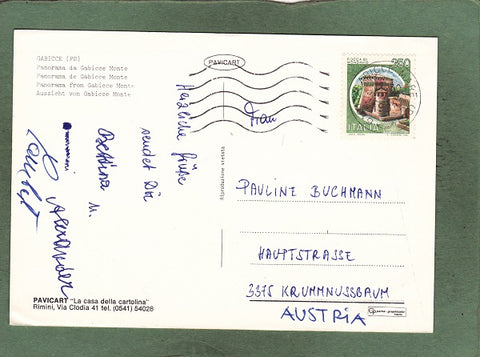 GABICCE (PS)
Panorama da Gabicce Monte
Panorama de Gabicce Monte
Panorama from Gabicce Monte
Aussicht von Gabicce Monte
PAVICART
250
ITALIA
Herzliche Grüße
sendet Dir
Bettina u.
Alexander
Frau
PAULINE BUCHMANN
HAUPTSTRASSE
3375 KRUMMNUSSBAUM
AUSTRIA
Riproduzione vietata
PAVICART "La casa della cartolina"
Rimini, Via Clodia 41 tel. (0541) 54028